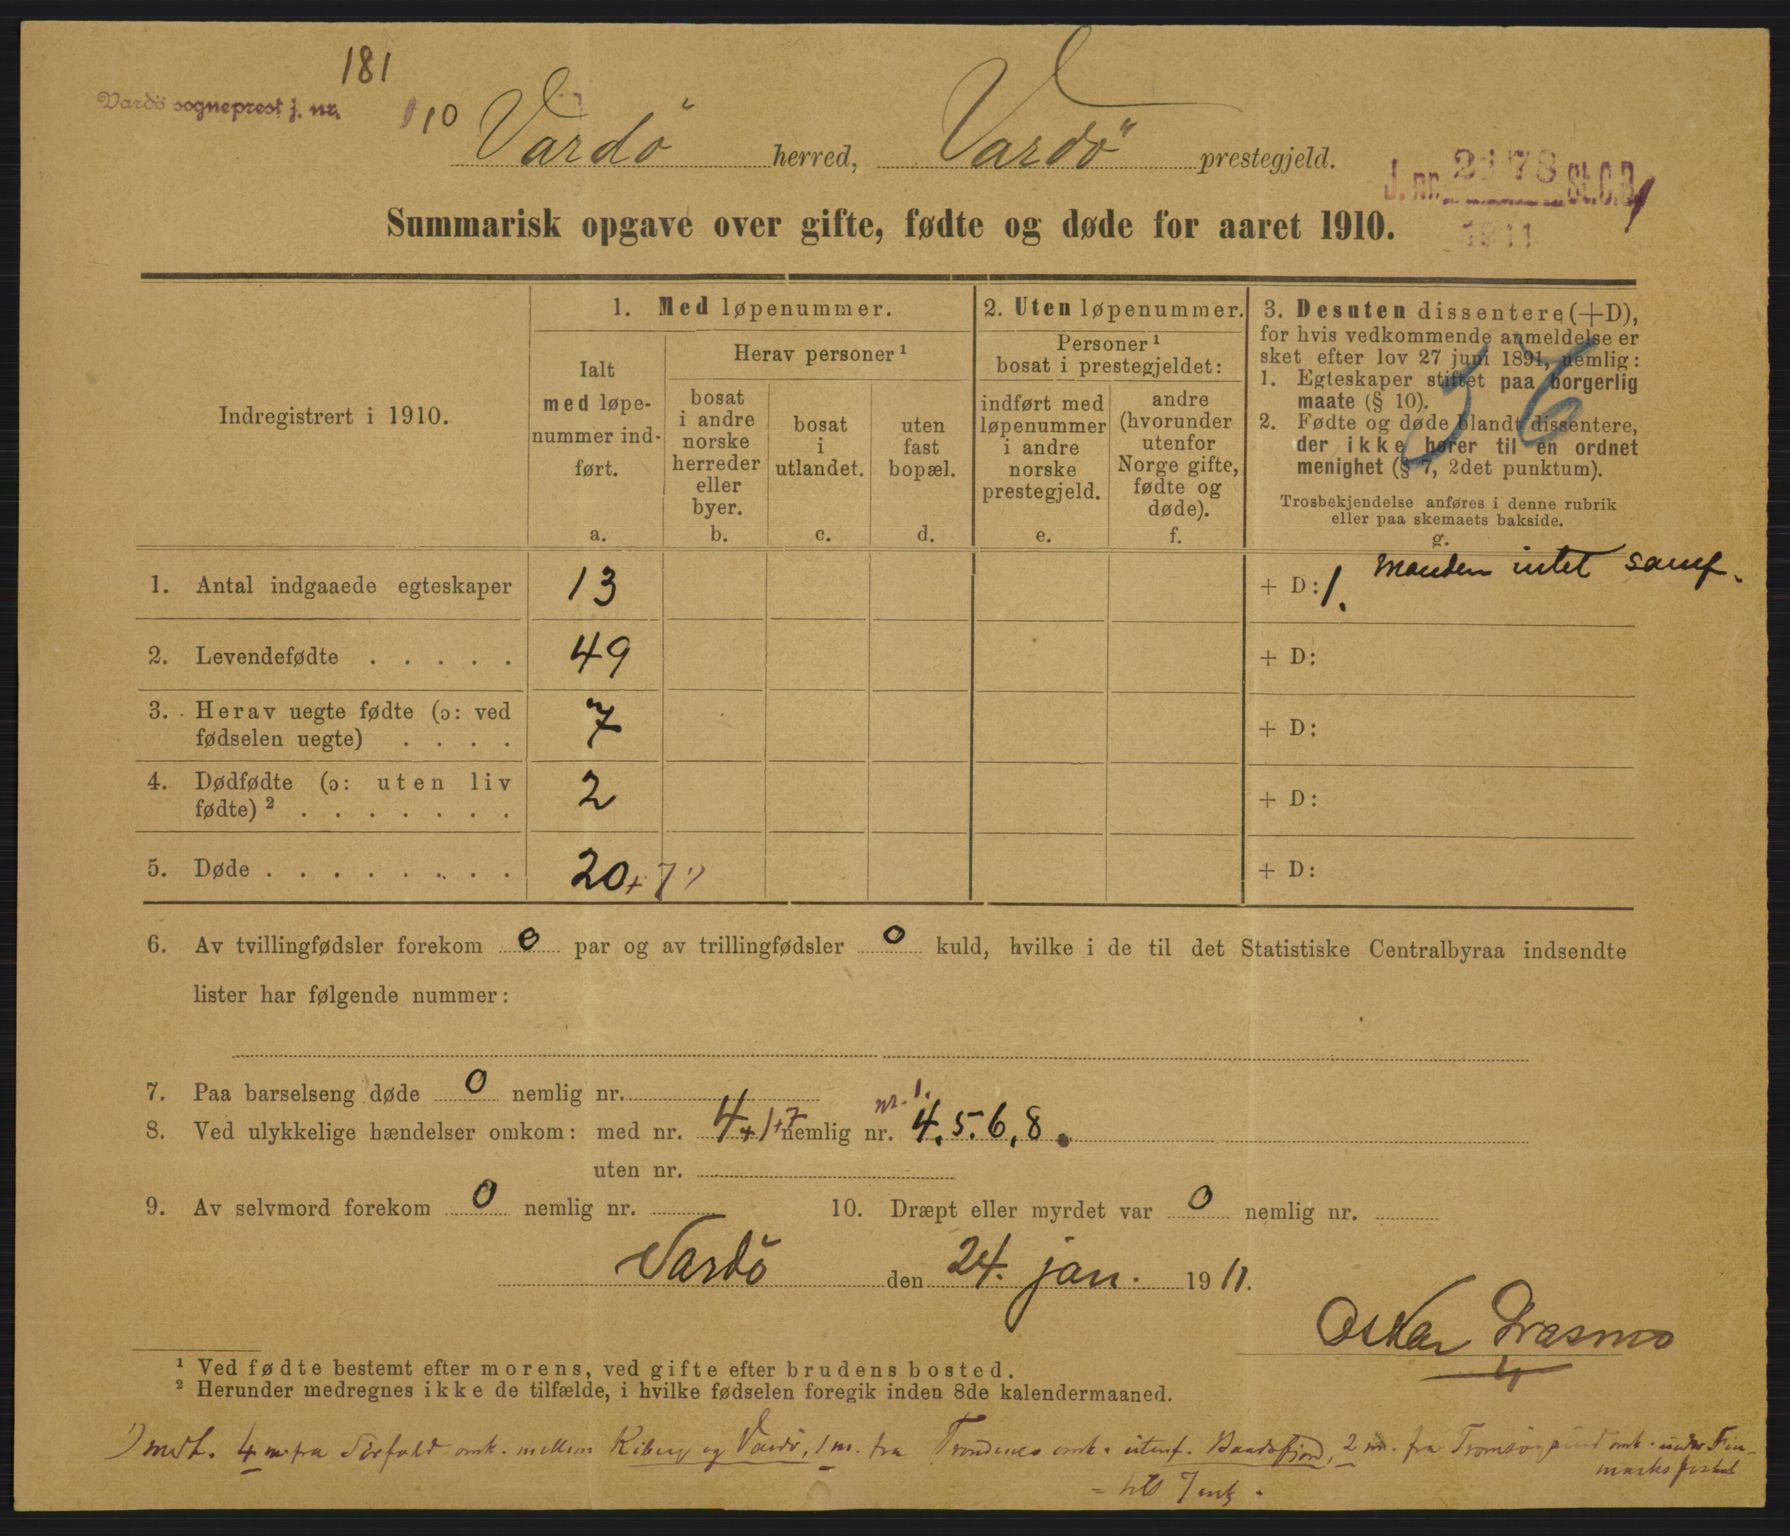 181
Vardö sogneprest j. nr. 10
Vardö herred, Vardö prestegjeld.
J. nr. 2178 St.C.B.
1911
Summarisk opgave over gifte, fødte og døde for aaret 1910.
Indregistrert i 1910.
1. Med løpenummer.
Ialt
med løpe-
nummer ind-
ført.
a.
Herav personer ¹
bosat
i andre
norske
herreder
eller
byer.
b.
bosat
i
utlandet.
c.
uten
fast
bopæl.
d.
2. Uten løpenummer.
Personer ¹
bosat i prestegjeldet:
indført med
løpenummer
i andre
norske
prestegjeld.
e.
andre
(hvorunder
utenfor
Norge gifte,
fødte og
døde).
f.
3. Desuten dissentere (+D),
for hvis vedkommende anmeldelse er
sket efter lov 27 juni 1891, nemlig:
1. Egteskaper stiftet paa borgerlig
maate (§ 10).
2. Fødte og døde blandt dissentere,
der ikke hører til en ordnet
menighet (§ 7, 2det punktum).
Trosbekjendelse anføres i denne rubrik
eller paa skemaets bakside.
g.
1. Antal indgaaede egteskaper 13 + D: 1. Manden intet samf.
2. Levendefødte . . . . . 49 + D:
3. Herav uegte fødte (ɔ: ved
fødselen uegte) . . . . 7 + D:
4. Dødfødte (ɔ: uten liv
fødte) ² . . . . . . . 2 + D:
5. Døde . . . . . . . . 20 + 7 ¹) + D:
6. Av tvillingfødsler forekom 0 par og av trillingfødsler 0 kuld, hvilke i de til det Statistiske Centralbyraa indsendte
lister har følgende nummer:
7. Paa barselseng døde 0 nemlig nr.
8. Ved ulykkelige hændelser omkom: med nr. 4 + 1 + 7 nemlig nr. nr. 1. 4. 5. 6, 8.
uten nr.
9. Av selvmord forekom 0 nemlig nr. 10. Dræpt eller myrdet var 0 nemlig nr.
Vardö den 24. jan. 1911.
Oskar
¹ Ved fødte bestemt efter morens, ved gifte efter brudens bosted.
² Herunder medregnes ikke de tilfælde, i hvilke fødselen foregik inden 8de kalendermaaned.
¹) 4 m. fra Sörfold omk. mellem Kiberg og Vardö, 1 m. fra Trondenes omk. utenf. Baadsfjord, 2 m. fra omk. under Fin-
marksfisket